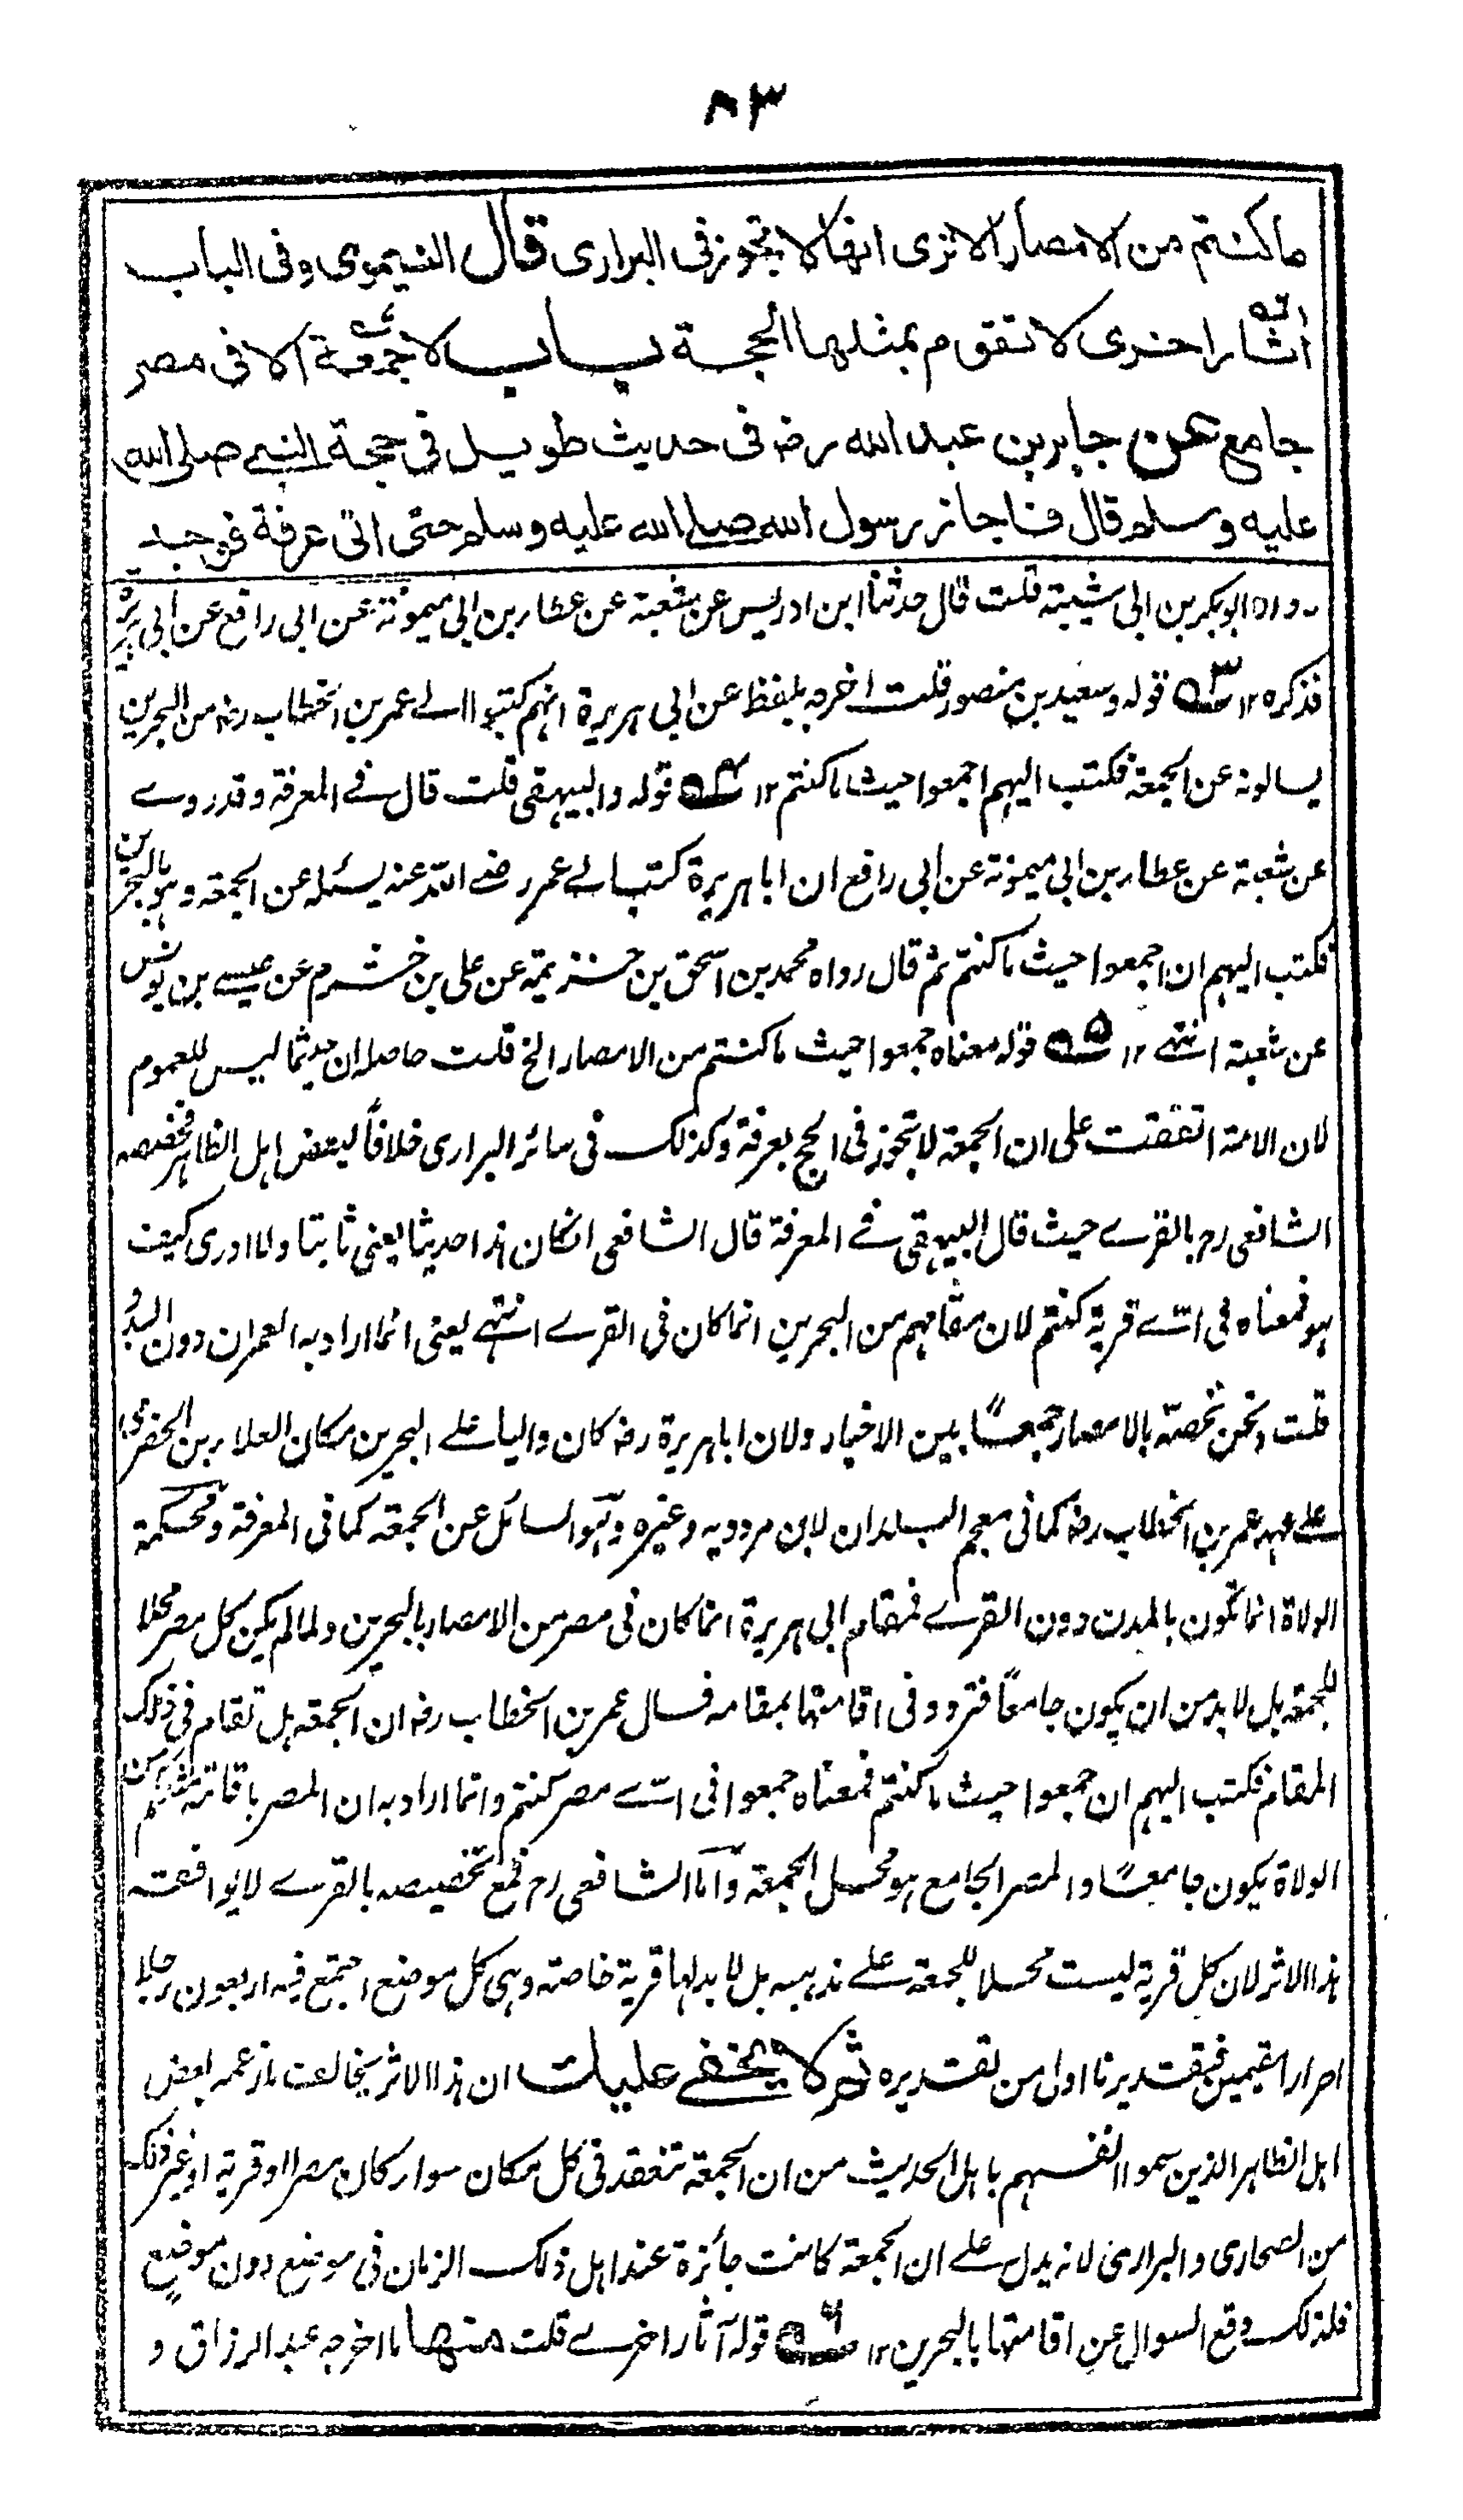 ٨٣
ما كنتم من الامصار الا ترى انها لا تجوز فى البرارى قال النيموى وفى الباب
اثار اخرى لا تقوم بمثلها الحجة باب لا جمعة الا فى مصر
جامع عن جابر بن عبد الله رض فى حديث طويل فى حجة النبى صلى الله
عليه وسلم قال فاجاز رسول الله صلى الله عليه وسلم حتى اتى عرفة فوجد
رواه ابو بكر بن ابى شيبة قلت قال حدثنا ابن ادريس عن شعبة عن عطاء بن ابى ميمونة عن ابى رافع عن ابى هريرة
فذكره ١٢ ٣ قوله وسعيد بن منصور قلت اخرجه بلفظ عن ابى هريرة انهم كتبوا الى عمر بن الخطاب رض من البحرين
يسالونه عن الجمعة فكتب اليهم اجمعوا حيث ما كنتم ١٢ ٤ قوله والبيهقى قلت قال فى المعرفة وقد روى
عن شعبة عن عطاء بن ابى ميمونة عن ابى رافع ان ابا هريرة كتب الى عمر رضى الله عنه يسئله عن الجمعة وهو بالبحرين
فكتب اليهم ان اجمعوا حيث ما كنتم ثم قال رواه محمد بن اسحق بن خزيمة عن على بن خشرم عن عيسى بن يونس
عن شعبة انتهى ١٢ ٥ قوله معناه جمعوا حيث ما كنتم من الامصار الخ قلت حاصله ان حيثما ليس للعموم
لان الامة اتفقت على ان الجمعة لا تجوز فى الحج بعرفة وكذلك فى سائر البرارى خلافاً لبعض اهل الظاهر فخصصه
الشافعى رح بالقرى حيث قال البيهقى فى المعرفة قال الشافعى انكان هذا حديثا يعنى ثابتا ولا ادرى كيف
هو فمعناه فى اى قرية كنتم لان مقامهم من البحرين انما كان فى القرى انتهى يعنى انما اراد به العمران دون البدو
قلت ونحن نخصه بالامصار جمعًا بين الاخبار ولان ابا هريرة رض كان واليا على البحرين مكان العلاء بن الحضرمى
على عهد عمر بن الخطاب رض كما فى معجم البلدان لابن مردويه وغيره وهو السائل عن الجمعة كما فى المعرفة ومحكمة
الولاة انما تكون بالمدن دون القرى فمقام ابى هريرة انما كان فى مصر من الامصار بالبحرين ولما لم يكن كل مصر محلا
للجمعة بل لابد من ان يكون جامعًا فتردد فى اقامتها بمقامه فسال عمر بن الخطاب رض ان الجمعة هل تقام فى ذلك
المقام فكتب اليهم ان جمعوا حيث ما كنتم فمعناه جمعوا فى اى مصر كنتم وانما اراد به ان المصر باقامة مثلهم من
الولاة يكون جامعًا والمصر الجامع هو محل الجمعة واما الشافعى رح فمع تخصيصه بالقرى لا يوافقه
هذا الاثر لان كل قرية ليست محلا للجمعة على مذهبه بل لابد لها قرية خاصة وهى كل موضع اجتمع فيه اربعون رجلا
احرارا مقيمين فبتقديرنا اولى من تقديره ثم لا يخفى عليك ان هذا الاثر يخالف ما زعمه بعض
اهل الظاهر الذين سموا انفسهم باهل الحديث من ان الجمعة تنعقد فى كل مكان سواء كان مصرا او قرية او غير ذلك
من الصحارى والبرارى لانه يدل على ان الجمعة كانت جائزة عند اهل ذلك الزمان فى موضع دون موضع
فلذلك وقع السوال عن اقامتها بالبحرين ١٢ ٦ قوله آثار اخرى قلت منها ما اخرجه عبد الرزاق و